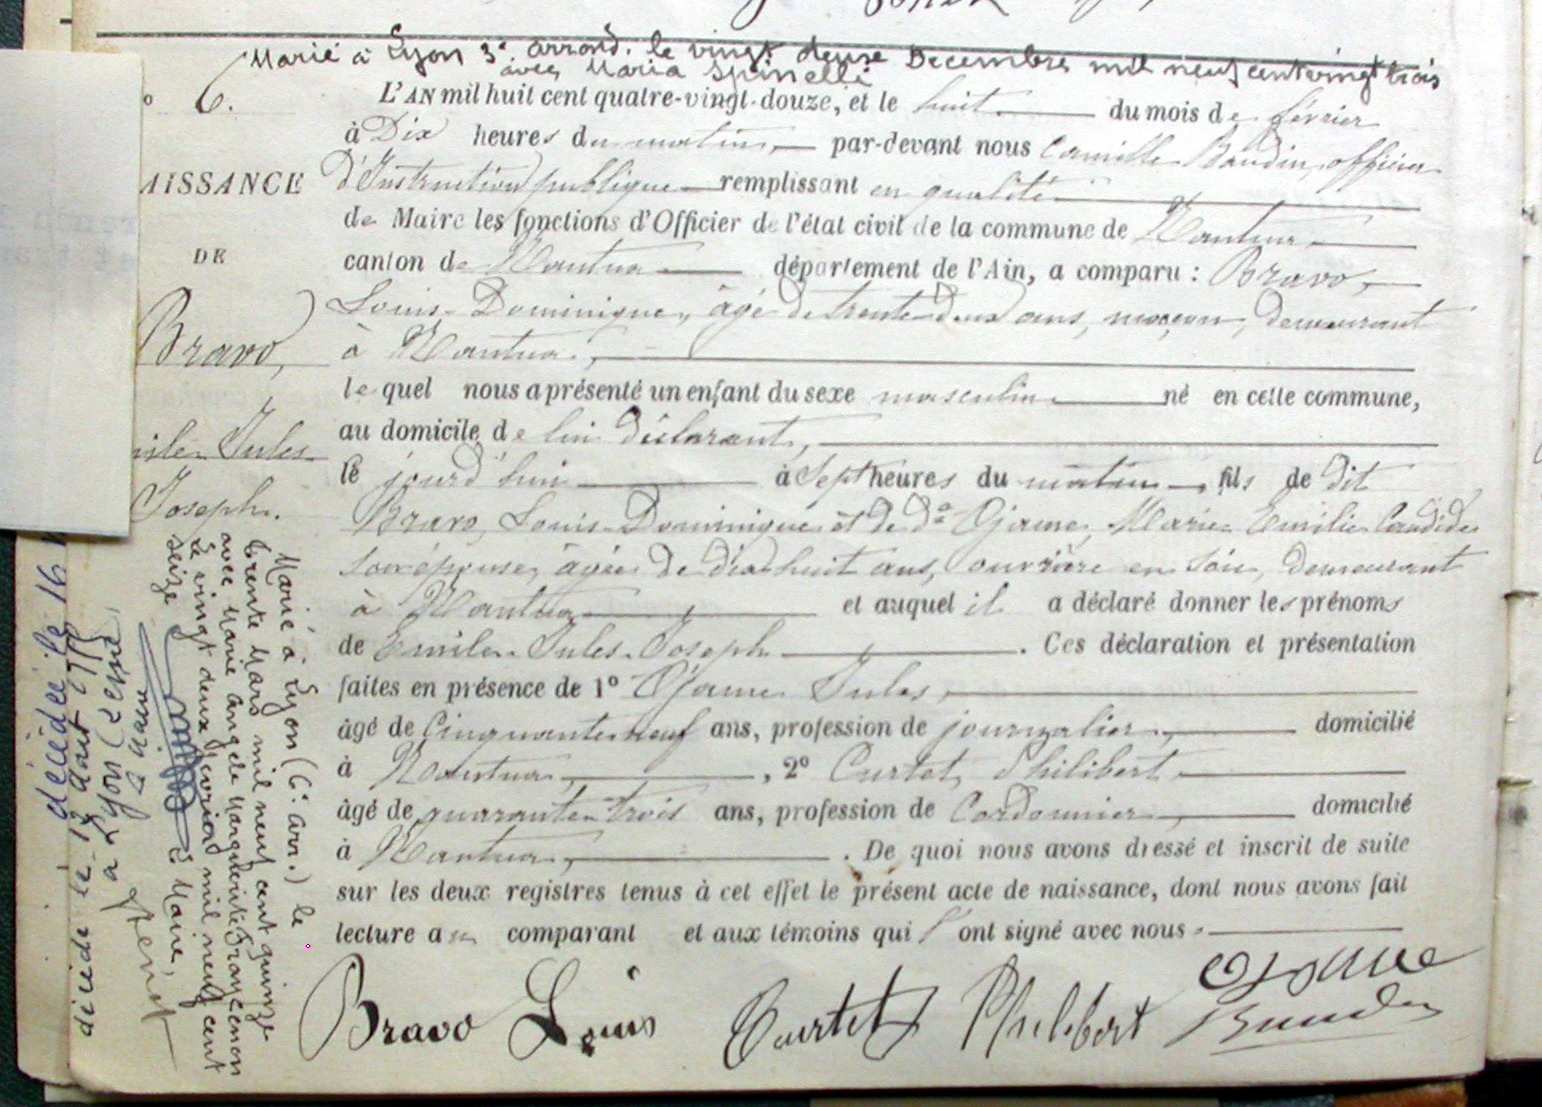 Marié à Lyon 3e arrond. le vingt deuxe Decembre mil neuf cent vingt trois
avec Maria Spinelli
6.
AISSANCE
DE
Bravo,
mile Jules
Joseph.
L'AN mil huit cent quatre-vingt-douze, et le huit du mois de février
à Dix heures du matin, par-devant nous Camille Baudin, officier
d'Instruction publique remplissant en qualité
de Maire les fonctions d'Officier de l'état civil de la commune de Nantua
canton de Nantua département de l'Ain, a comparu : Bravo,
Louis Dominique, âgé de trente-deux ans, maçon, demeurant
à Nantua,
lequel nous a présenté un enfant du sexe masculin né en cette commune,
au domicile de lui déclarant,
le jourd'hui à Sept heures du matin, fils de dit
Bravo, Louis Dominique et de de Ojame, Marie Emilie Candide
son épouse, âgée de dix-huit ans, ouvrière en soie, demeurant
à Nantua, et auquel il a déclaré donner les prénoms
de Emile Jules Joseph. Ces déclaration et présentation
faites en présence de 1° Ojame Jules,
âgé de Cinquante-neuf ans, profession de journalier, domicilié
à Nantua, , 2° Curtet, Philibert
âgé de quarante-trois ans, profession de Cordonnier, domicilié
à Nantua, . De quoi nous avons dressé et inscrit de suite
sur les deux registres tenus à cet effet le présent acte de naissance, dont nous avons fait
lecture au comparant et aux témoins qui l'ont signé avec nous.
Bravo Louis Curtet Philibert Ojame
Baudin
Marié à Lyon (6e arr.) le
trente Mars mil neuf cent quinze
avec Marie Angèle Marguerite Françenon
Le vingt deux février mil neuf cent
seize Le Maire,
décédé le 16
décédé le 13 août 1975
à Lyon (2eme)
Le Maire